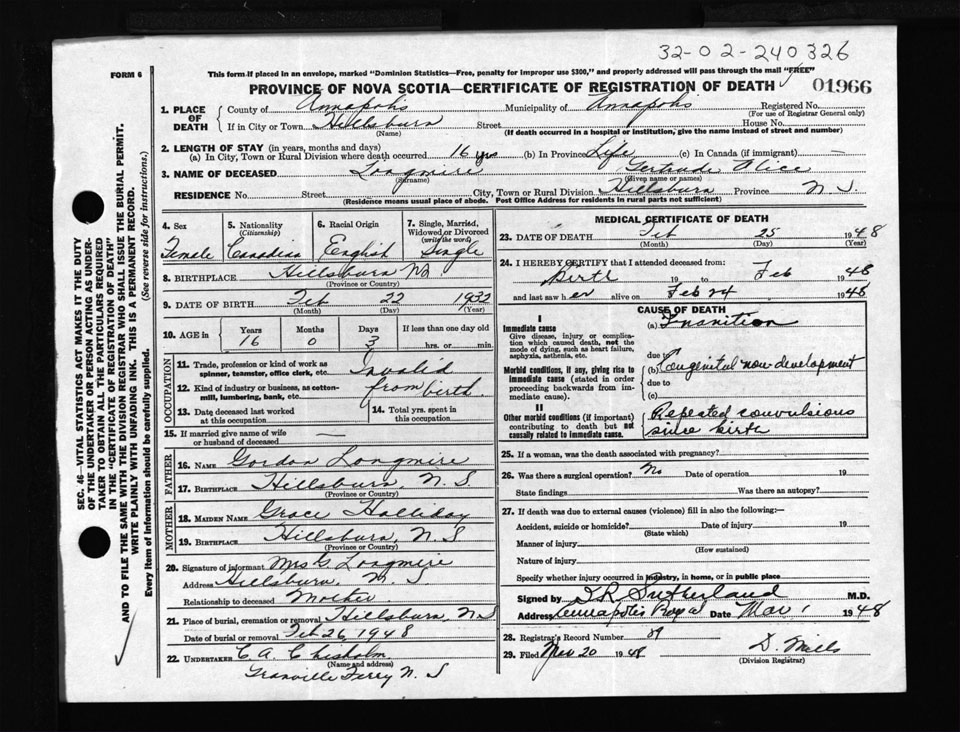 32-02-240326
FORM 6
This form if placed in an envelope, marked "Dominion Statistics—Free, penalty for improper use $300," and properly addressed will pass through the mail "FREE"
PROVINCE OF NOVA SCOTIA—CERTIFICATE OF REGISTRATION OF DEATH
01966
1. PLACE OF DEATH
County of Annapolis Municipality of Annapolis Registered No.
(For use of Registrar General only)
If in City or Town Hillsburn Street House No.
(Name) (If death occurred in a hospital or institution, give the name instead of street and number)
2. LENGTH OF STAY (in years, months and days)
(a) In City, Town or Rural Division where death occurred 16 yrs (b) In Province Life (c) In Canada (if immigrant) —
3. NAME OF DECEASED Longmire Gertrude Alice
(Surname) (Given name or names)
RESIDENCE No. Street City, Town or Rural Division Hillsburn Province N.S.
(Residence means usual place of abode. Post Office Address for residents in rural parts not sufficient)
4. Sex
Female
5. Nationality (Citizenship)
Canadian
6. Racial Origin
English
7. Single, Married, Widowed or Divorced (write the word)
Single
8. BIRTHPLACE Hillsburn NS
(Province or Country)
9. DATE OF BIRTH Feb 22 1932
(Month) (Day) (Year)
10. AGE in Years Months Days If less than one day old
16 0 3 hrs. or min.
OCCUPATION
11. Trade, profession or kind of work as spinner, teamster, office clerk, etc. Invalid
12. Kind of industry or business, as cotton-mill, lumbering, bank, etc. from birth.
13. Date deceased last worked at this occupation
14. Total yrs. spent in this occupation
15. If married give name of wife or husband of deceased —
FATHER
16. NAME Gordon Longmire
17. BIRTHPLACE Hillsburn, N.S.
(Province or Country)
MOTHER
18. MAIDEN NAME Grace Halliday
19. BIRTHPLACE Hillsburn, N.S
(Province or Country)
20. Signature of informant Mrs G. Longmire
Address Hillsburn, N.S
Relationship to deceased Mother
21. Place of burial, cremation or removal Hillsburn, N.S
Date of burial or removal Feb 26, 1948
22. UNDERTAKER C A Chisholm
(Name and address)
Granville Ferry N.S
MEDICAL CERTIFICATE OF DEATH
23. DATE OF DEATH Feb 25 1948
(Month) (Day) (Year)
24. I HEREBY CERTIFY that I attended deceased from:
Birth 19 to Feb 1948
and last saw her alive on Feb 24 1948
CAUSE OF DEATH
I
Immediate cause
Give disease, injury or complication which caused death, not the mode of dying, such as heart failure, asphyxia, asthenia, etc.
(a) Inanition
due to
Morbid conditions, if any, giving rise to immediate cause (stated in order proceeding backwards from immediate cause).
(b) Congenital non-development
due to
(c)
II
Other morbid conditions (if important) contributing to death but not causally related to immediate cause.
Repeated convulsions
since birth
25. If a woman, was the death associated with pregnancy?
26. Was there a surgical operation? No Date of operation 19
State findings Was there an autopsy?
27. If death was due to external causes (violence) fill in also the following:—
Accident, suicide or homicide? Date of injury 19
(State which)
Manner of injury
(How sustained)
Nature of injury
Specify whether injury occurred in industry, in home, or in public place
Signed by Sutherland M.D.
Address Annapolis Royal Date Mar 1 1948
28. Registrar's Record Number
29. Filed Mar 20 1948 D. Mills
(Division Registrar)
SEC. 46—VITAL STATISTICS ACT MAKES IT THE DUTY
OF THE UNDERTAKER OR PERSON ACTING AS UNDER-
TAKER TO OBTAIN ALL THE PARTICULARS REQUIRED
IN THE "CERTIFICATE OF REGISTRATION OF DEATH"
AND TO FILE THE SAME WITH THE DIVISION REGISTRAR WHO SHALL ISSUE THE BURIAL PERMIT.
WRITE PLAINLY WITH UNFADING INK. THIS IS A PERMANENT RECORD.
Every item of information should be carefully supplied. (See reverse side for instructions.)